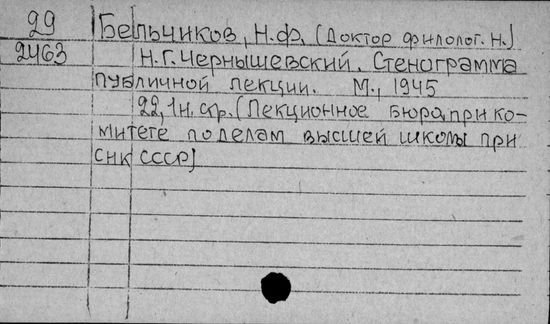 29 Бельчиков, Н.Ф. (Доктор филолог. н.)
2463 Н.Г. Чернышевский. Стенограмма
публичной лекции. М., 1945
22, 1н. стр. (Лекционное бюро при ко-
митете по делам высшей школы при
СНК СССР)